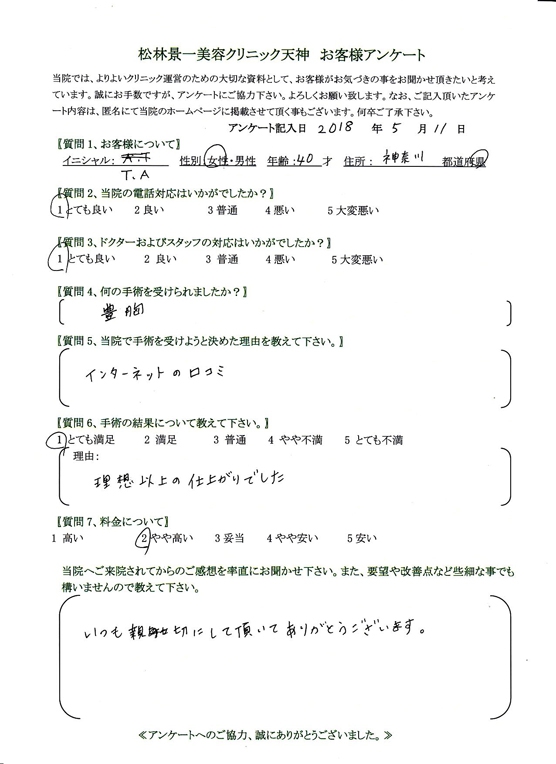 松林景一美容クリニック天神 お客様アンケート
当院では、よりよいクリニック運営のための大切な資料として、お客様がお気づきの事をお聞かせ頂きたいと考え
ています。誠にお手数ですが、アンケートにご協力下さい。よろしくお願い致します。なお、ご記入頂いたアンケ
ート内容は、匿名にて当院のホームページに掲載させて頂く事もございます。何卒ご了承下さい。
アンケート記入日 2018 年 5 月 11 日
〖質問 1、お客様について〗
イニシャル: A.T 性別 女性・男性 年齢:40 才 住所: 神奈川 都道府県
T.A
〖質問 2、当院の電話対応はいかがでしたか?〗
1 とても良い 2 良い 3 普通 4 悪い 5 大変悪い
〖質問 3、ドクターおよびスタッフの対応はいかがでしたか?〗
1 とても良い 2 良い 3 普通 4 悪い 5 大変悪い
〖質問 4、何の手術を受けられましたか?〗
豊胸
〖質問 5、当院で手術を受けようと決めた理由を教えて下さい。〗
インターネットの口コミ
〖質問 6、手術の結果について教えて下さい。〗
1 とても満足 2 満足 3 普通 4 やや不満 5 とても不満
理由:
理想以上の仕上がりでした
〖質問 7、料金について〗
1 高い 2 やや高い 3 妥当 4 やや安い 5 安い
当院へご来院されてからのご感想を率直にお聞かせ下さい。また、要望や改善点など些細な事でも
構いませんので教えて下さい。
いつも親切にして頂いてありがとうございます。
≪アンケートへのご協力、誠にありがとうございました。≫